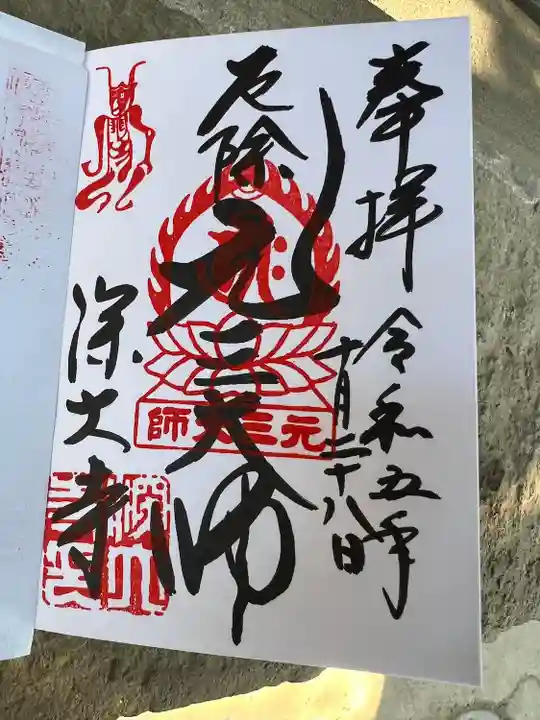 奉拝
令和五年
十月二十八日
厄除
元三大師
元三大師
深大寺